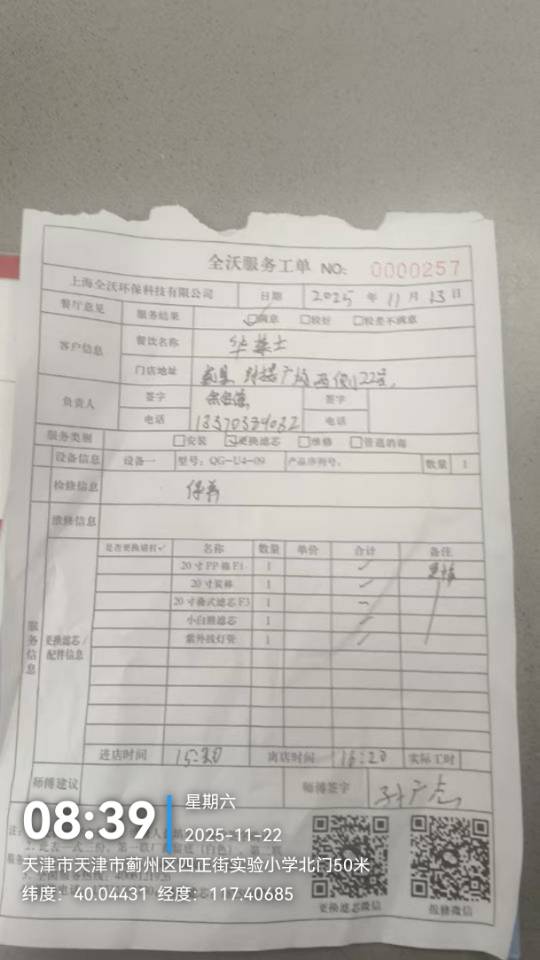 全沃服务工单 NO: 0000257
上海全沃环保科技有限公司 日期 2025 年 11 月 13 日
餐厅意见 服务结果 ☑满意 □较好 □较差不满意
客户信息 餐饮名称 华莱士
门店地址 广场西侧22号
负责人 签字 签字
电话 13370334032 电话
服务类别 □安装 ☑更换滤芯 □维修 □管道消毒
设备信息 设备一 型号: QG-U4-09 产品序列号: 数量 1
检修信息 保养
维修信息
服务信息 更换滤芯/配件信息
是否更换请打✓ 名称 数量 单价 合计 备注
20寸PP棉F1 1
20寸炭棒 1
20寸 滤芯F3 1
小白 滤芯 1
紫外线灯管 1
进店时间 15:20 离店时间 16:20 实际工时
师傅建议 师傅签字 孙广志
08:39 星期六
2025-11-22
天津市天津市蓟州区四正街实验小学北门50米
纬度: 40.04431 经度: 117.40685
更换滤芯微信 报修微信